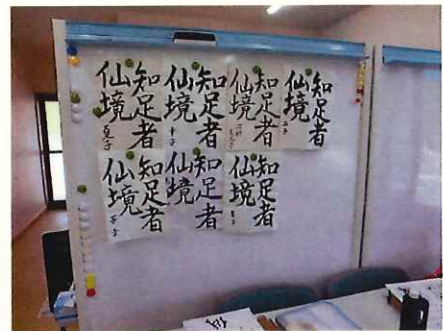 知足者
仙境
知足者
仙境
知足者
仙境
知足者
仙境
知足者
仙境
知足者
仙境
知足者
仙境